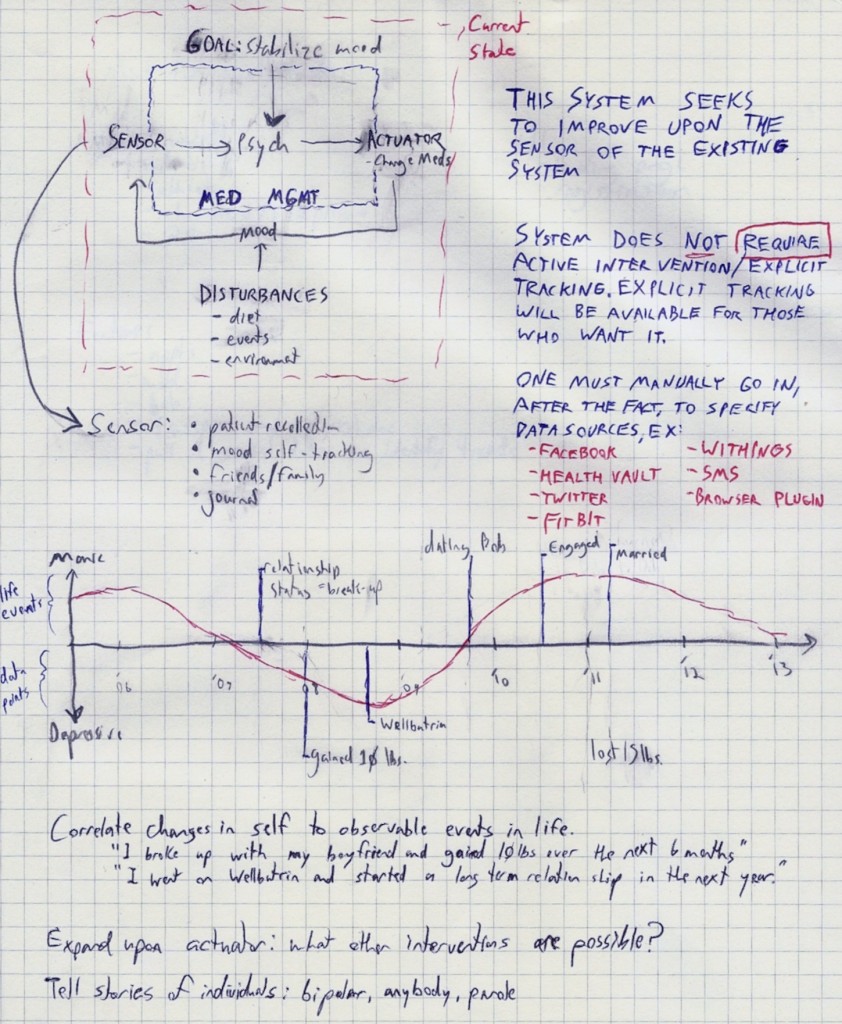 Current
State
GOAL: Stabilize mood
SENSOR
Psych
ACTUATOR
- Change Meds
MED MGMT
Mood
DISTURBANCES
- diet
- events
- environment
THIS SYSTEM SEEKS
TO IMPROVE UPON THE
SENSOR OF THE EXISTING
SYSTEM
SYSTEM DOES NOT REQUIRE
ACTIVE INTERVENTION/EXPLICIT
TRACKING. EXPLICIT TRACKING
WILL BE AVAILABLE FOR THOSE
WHO WANT IT.
ONE MUST MANUALLY GO IN,
AFTER THE FACT, TO SPECIFY
DATA SOURCES, EX:
- FACEBOOK
- HEALTH VAULT
- TWITTER
- FITBIT
- WITHINGS
- SMS
- BROWSER PLUGIN
Sensor:
• patient recollection
• mood self-tracking
• friends/family
• journal
Manic
life
events
data
points
Depressive
relationship
status = break-up
dating Bob
Engaged
Married
'06
'07
'08
'09
'10
'11
'12
'13
Wellbutrin
gained 10 lbs.
lost 15 lbs.
Correlate changes in self to observable events in life.
"I broke up with my boyfriend and gained 10 lbs over the next 6 months"
"I went on Wellbutrin and started a long term relation ship in the next year."
Expand upon actuator: what other interventions are possible?
Tell stories of individuals: bipolar, anybody,